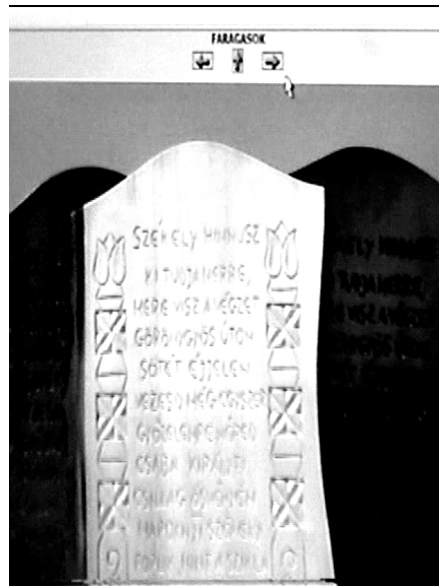 FARAGÁSOK
SZÉKELY HIMNUSZ
KI TUDJA MERRE,
MERE VISZ A VÉGZET
GÖRÖNGYÖS ÚTON
SÖTÉT ÉJJELEN
VEZESD MÉG EGYSZER
GYŐZELEMRE NÉPED
CSABA KIRÁLYFI
CSILLAG ÖSVÉNYEN
MAROKNYI SZÉKELY
PORLIK MINT A SZIKLA